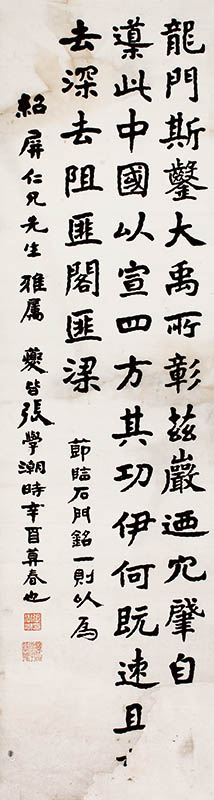 龍門斯鑿大禹所彰茲巖迺穴肇自
導此中國以宣四方其功伊何既速且
去深去阻匪閣匪梁 節臨石門銘一則以為
紹屏仁兄先生雅屬 夔皆張學潮時辛酉莫春也